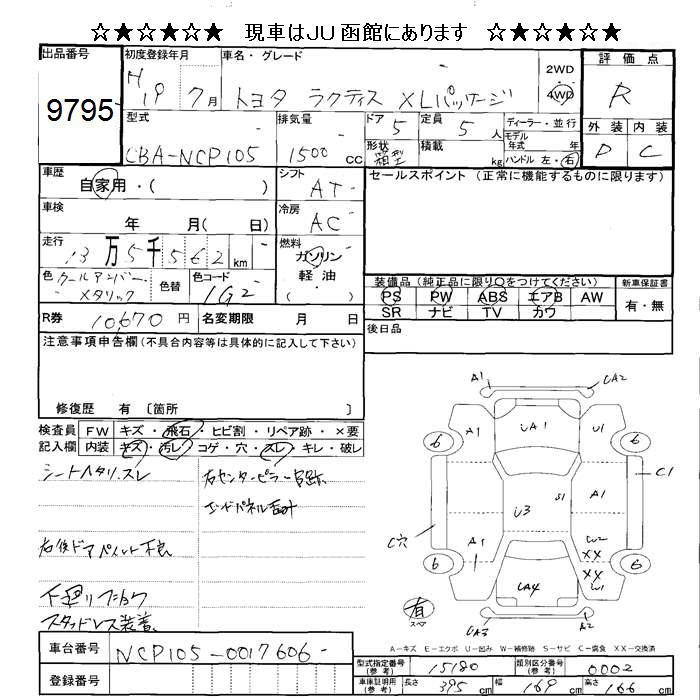 ☆★☆★☆★ 現車はJU函館にあります ☆★☆★☆★
出品番号 初度登録年月 車名・グレード 2WD 評価点
9795 H19 7月 トヨタ ラクティス XLパッケージ 4WD R
型式 排気量 ドア 定員 ディーラー・並行 外装 内装
CBA-NCP105 1500 cc 5 5人 モデル年式 年 D C
形状 箱型 積載 kg ハンドル 左・右
車歴 自家用・( ) シフト AT セールスポイント(正常に機能するものに限ります)
車検 年 月( 日) 冷房 AC
走行 13万5千562 km 燃料 ガソリン 軽油
色 クールアンバーメタリック 色替 色コード 1G2
装備品(純正品に限り○をつけてください) 新車保証書
PS PW ABS エアB AW 有・無
SR ナビ TV カワ
R券 10,670円 名変期限 月 日 後日品
注意事項申告欄(不具合内容等は具体的に記入して下さい)
修復歴 有〔箇所 〕
検査員 FW キズ・飛石・ヒビ割・リペア跡・×要
記入欄 内装 キズ・汚レ・コゲ・穴・スレ・キレ・破レ
シートヘタリ.スレ 右センターピラー
エンドパネル
右後ドアペイント不良
下廻リフショク
スタッドレス装着
A1 UA2
A1 UA1 U1
6 6
C1
S1 A1
C穴 U3
A1 W2
XX
1 XX
6 UA4 W1 6
有 スペア
UA3 A2
A-キズ E-エクボ U-凹み W-補修跡 S-サビ C-腐食 XX-交換済
車台番号 NCP105-0017606
登録番号
型式指定番号(参考) 15180 類別区分番号(参考) 0002
車庫証明用(参考) 長さ 395 cm 幅 169 cm 高さ 166 cm